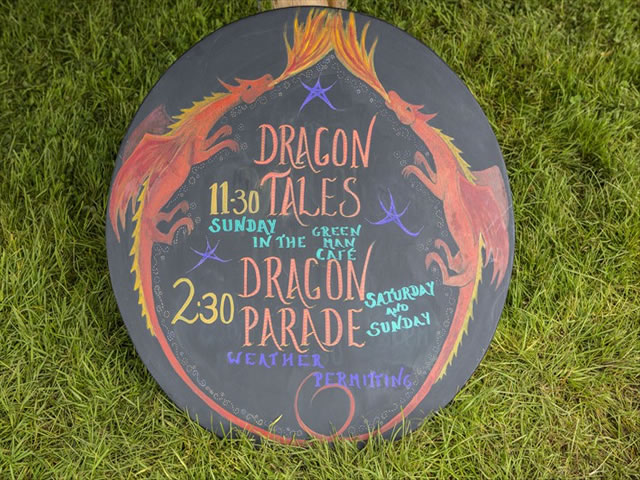 DRAGON
11:30 TALES
SUNDAY
IN THE GREEN
MAN
CAFÉ
DRAGON
2:30 PARADE
SATURDAY
AND
SUNDAY
WEATHER
PERMITTING